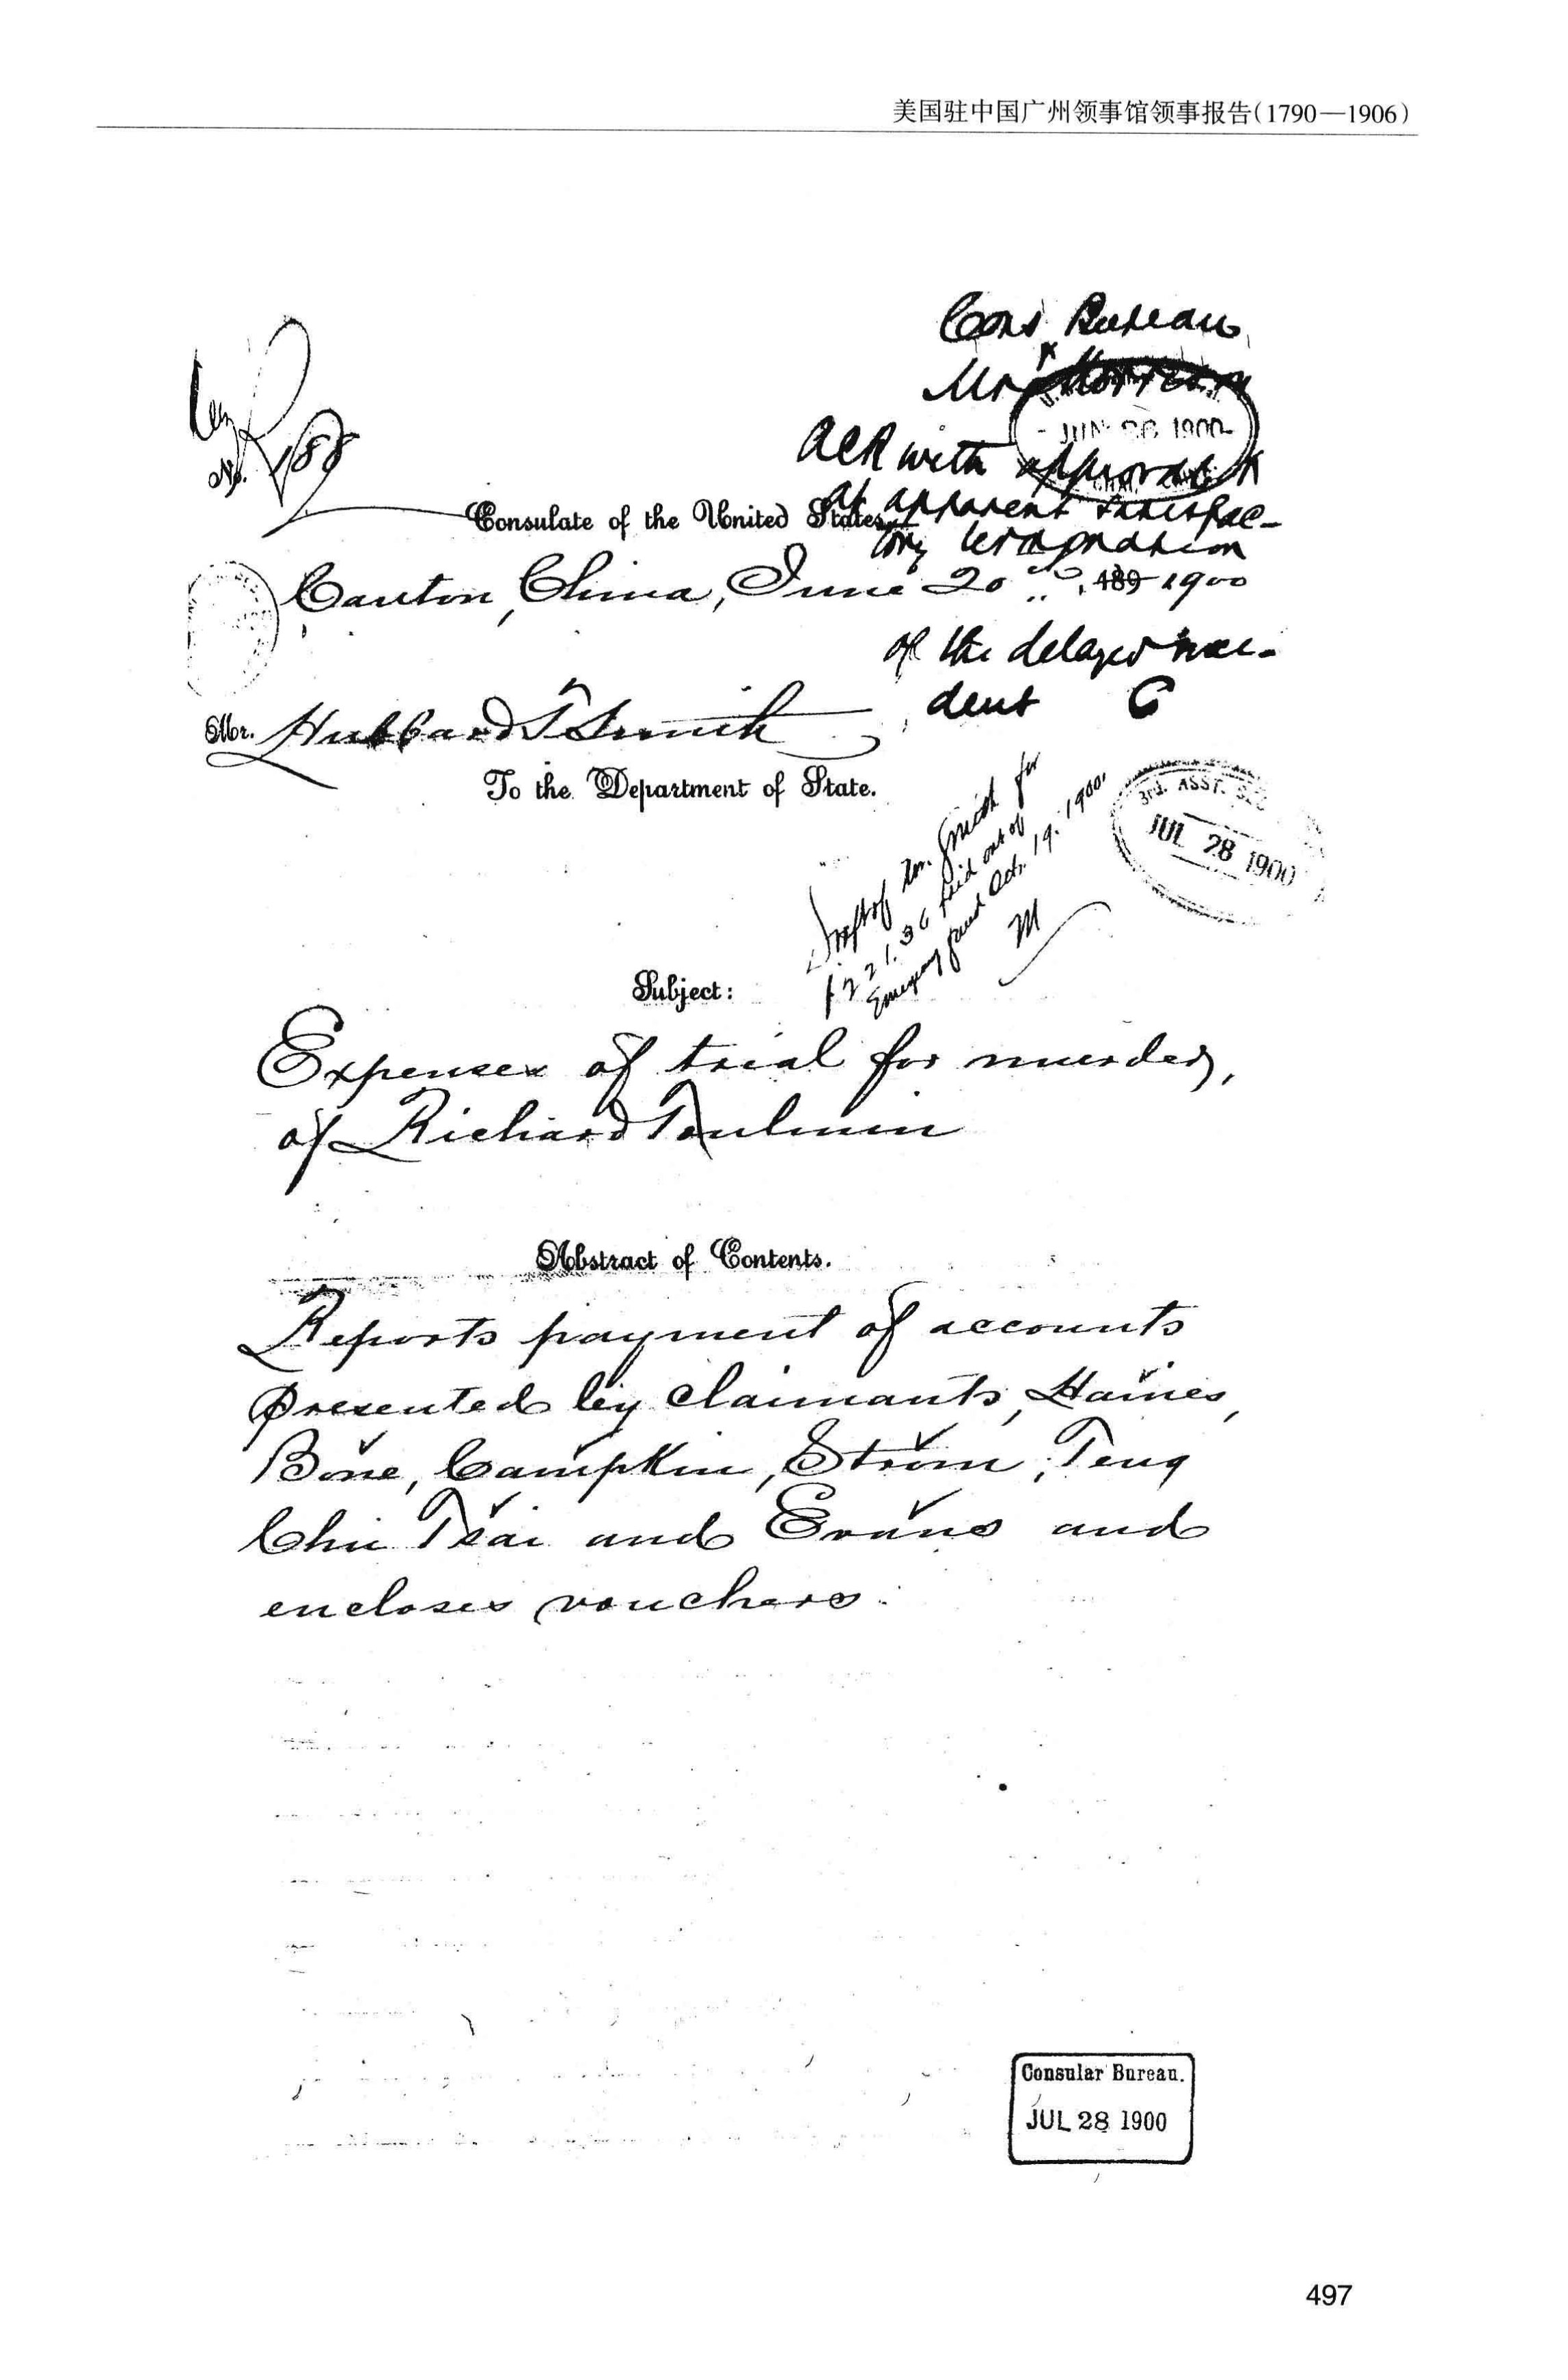 美国驻中国广州领事馆领事报告(1790—1906)
Cons Bureau
Mr
JUN 26 1900
Ack with approval
of apparent satisfac-
tory termination
No. 188
Consulate of the United States,
Canton, China, June 20", 189 1900
of the delayed
dent C
Mr. Hubbard T. Smith
To the Department of State.
3rd. ASST. SEC
JUL 28 1900
Draft of Mr. Smith for
$221.36 paid out of
Emergency fund Oct. 19. 1900.
M
Subject:
Expenses of trial for murder,
of Richard Toulmin
Abstract of Contents.
Reports payment of accounts
presented by claimants, Haines,
Bone, Campkin, Strom, Teng
Chii Tsai and Evans and
encloses vouchers.
Consular Bureau.
JUL 28 1900
497